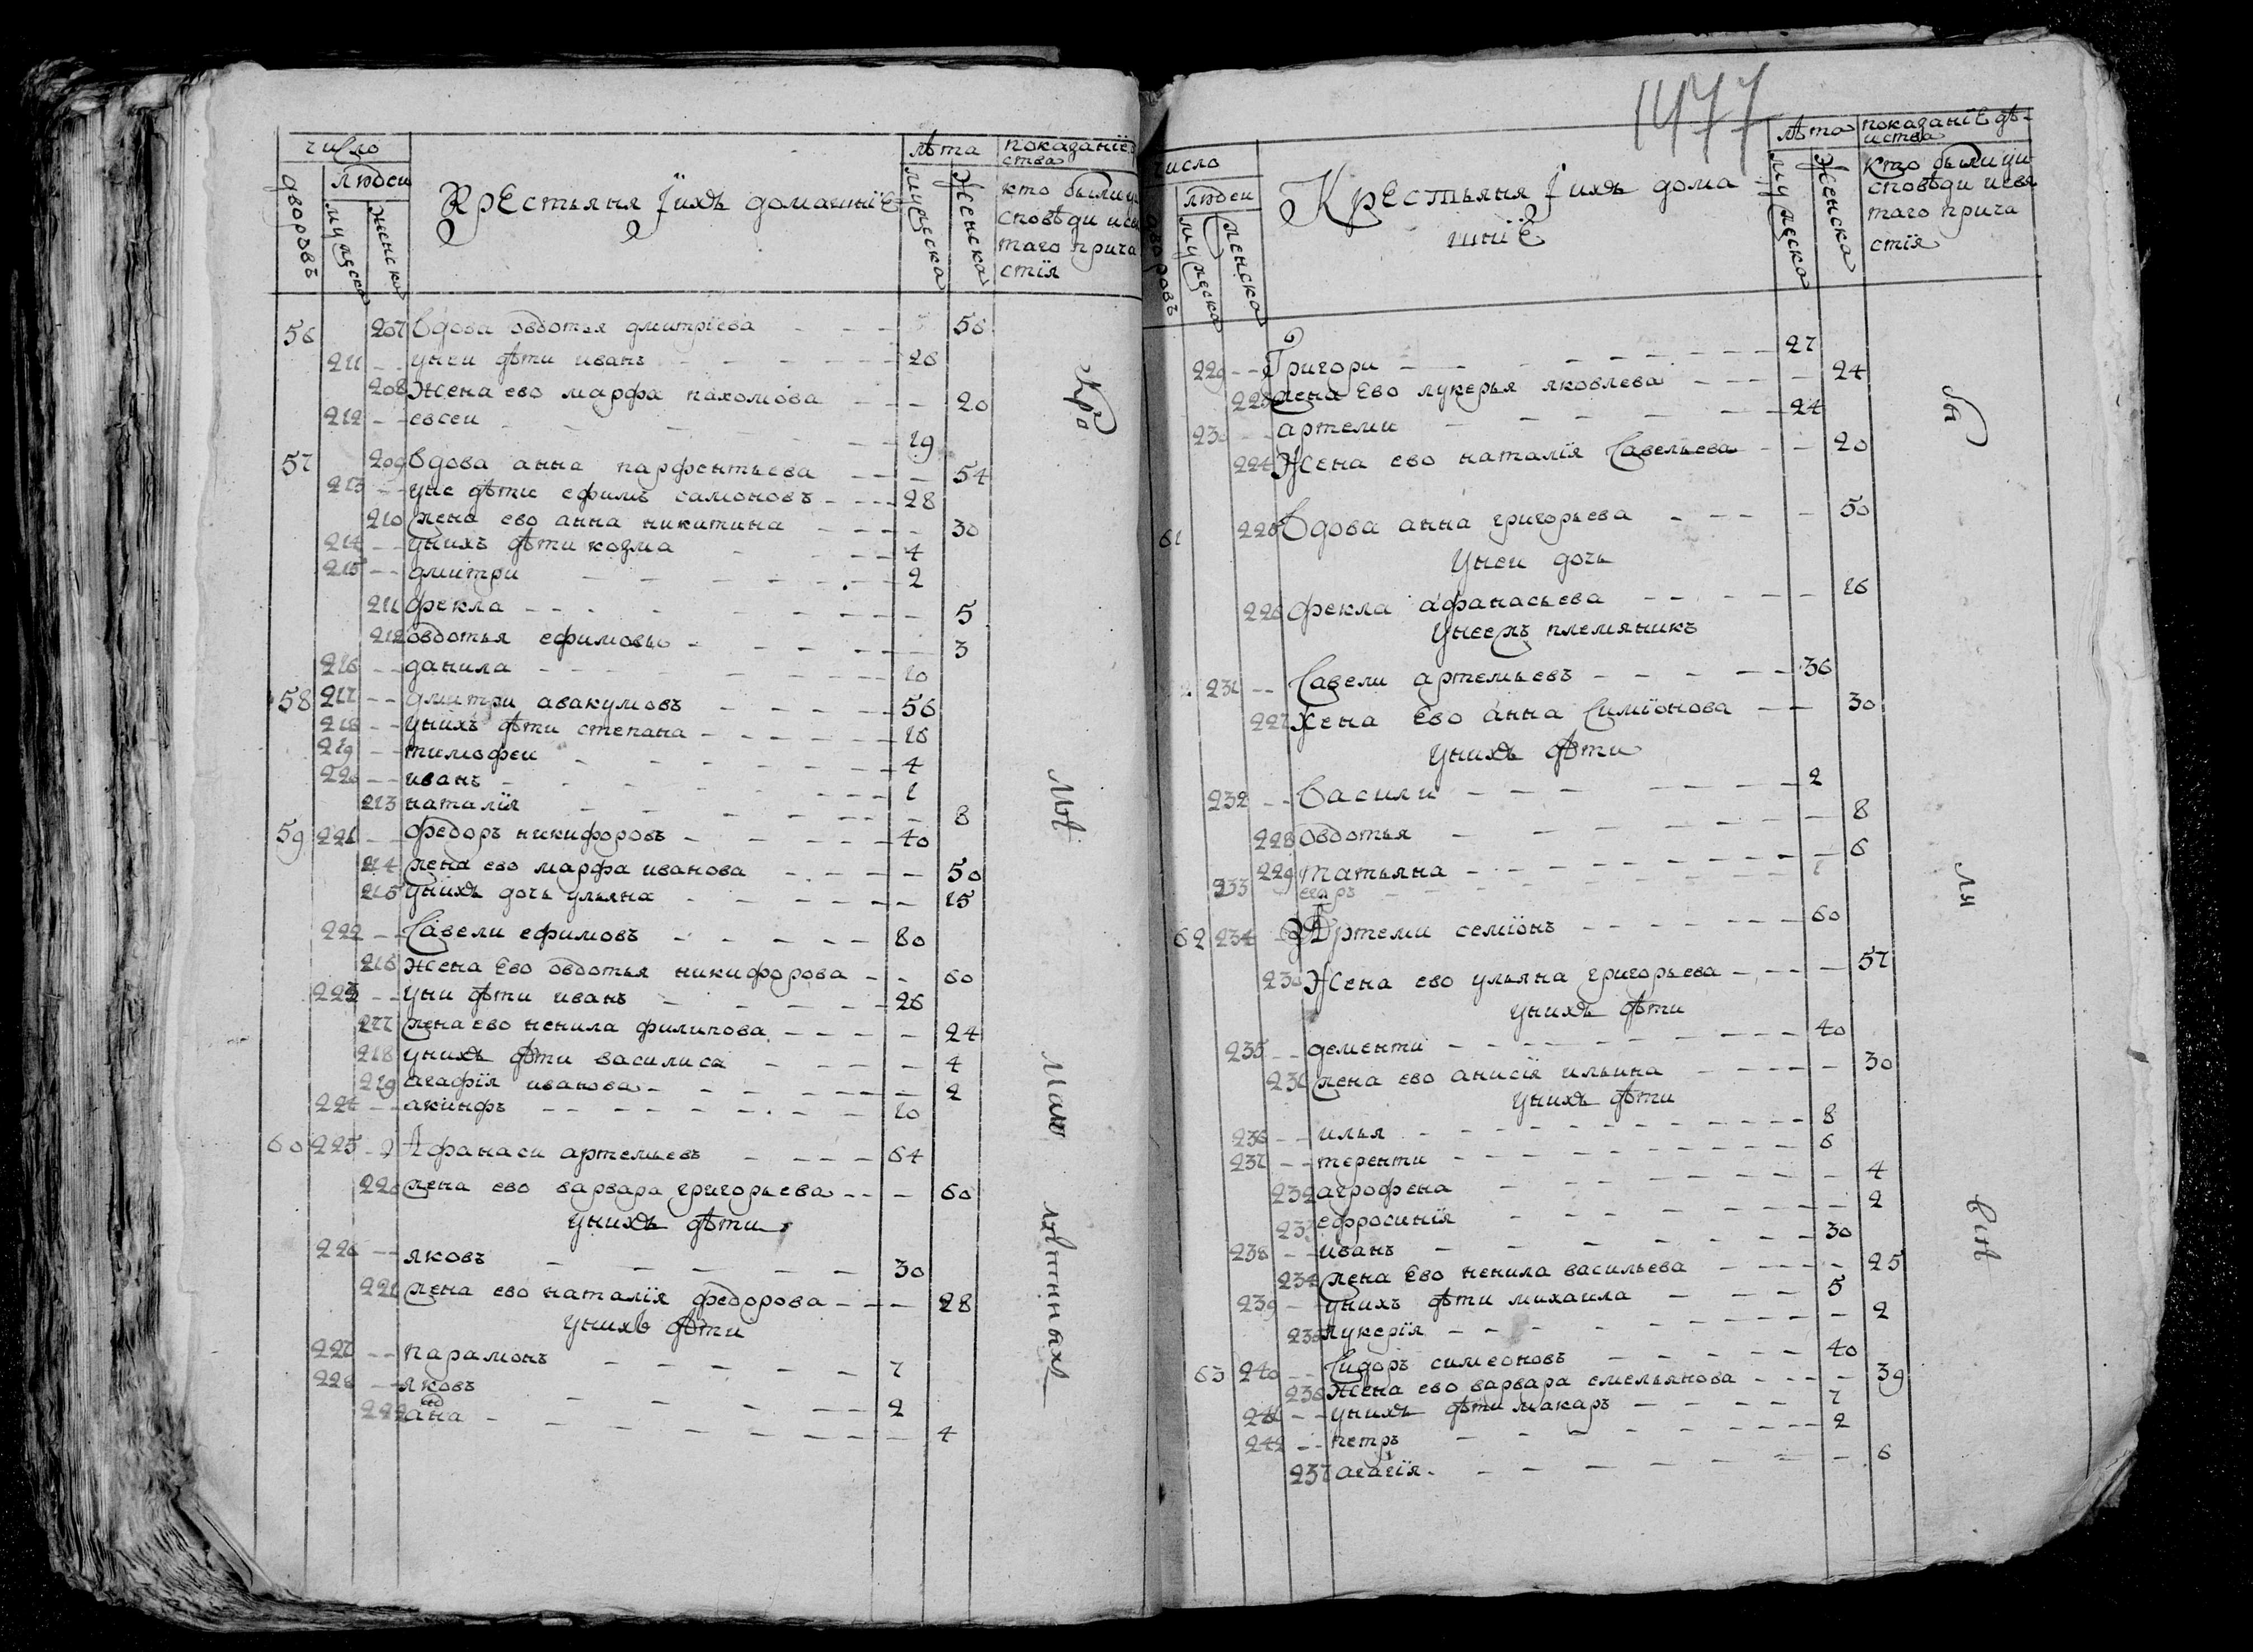 число
лѣта
показанїе
ства
дворовъ
людеи
мужеска
женска
Крестьяня Їихъ домашнїЕ
мужеска
Женска
кто были уи
сповѣди исвя
таго прича
стїя
56 207 вдова овдотья дмитрїева - - - 56
211 - - унеи дѣти иванъ - - - 26
208 Жена ево марфа пахомова - - - 20
212 - - евсеи - - - 19
57 209 вдова анна парфентьева - - - 54
213 - - уне дѣти ефимъ самоновъ - - - 28
210 жена ево анна никитина - - - 30
214 - - унихъ дѣти козма - - - 4
215 - - дмитри - - - 2
211 фекла - - - 5
212 овдотья ефимовы - - - 3
216 - - данила - - - 10
58 217 - - дмитри авакумовъ - - - 56
218 - - унихъ дѣти степана - - - 16
219 - - тимофеи - - - 4
220 - - иванъ - - - 1
213 наталїя - - - 8
59 221 - - федоръ никифоровъ - - - 40
214 жена ево марфа иванова - - - 50
215 унихъ дочь ульяна - - - 15
222 - - Савели ефимовъ - - - 80
216 Жена Ево овдотья никифорова - - 60
223 - - уни дѣти иванъ - - - 26
217 жена ево ненила филипова - - - 24
218 унихъ дѣти василиса - - - 4
219 агафїя иванова - - - 2
224 - - акинфъ - - - 10
60 225 - Афанаси артемьевъ - - - 64
220 жена ево варвара григорьева - - - 60
унихъ дѣти
226 - - яковъ - - - 30
221 жена ево наталїя федорова - - - 28
унихъ дѣти
227 - - парамонъ - - - 7
228 - - яковъ - - - 2
222 ана - - - 4
Кро
мѣ
мало
лѣтныхъ
1477
число
лѣта
показанїе дѣ-
иства
дворовъ
людеи
мужеска
женска
Крестьяня Їихъ дома
шнїЕ
мужеска
Женска
Кто были уи
сповѣди исвя
таго прича
стїя
229 - - Григори - - - 27
223 жена Ево лукерья яковлева - - - 24
230 - - артеми - - - 24
224 Жена ево наталїя Савельева - - 20
61 225 Вдова анна григорьева - - - 50
Унеи дочь
226 фекла афанасьева - - - 16
Унееж племяникъ
231 - - Савели артемьевъ - - - 36
227 Жена Ево анна Симїонова - - 30
Унихъ дѣти
232 - - Васили - - - 2
228 овдотья - - - 8
229 татьяна - - - 6
233 егаръ - - - 1
62 234 Артеми семїонъ - - - 60
230 Жена ево ульяна григорьева - - - 57
унихъ дѣти
235 - - дементи - - - 40
231 жена ево анисїя ильина - - - 30
Унихъ дѣти
236 - - илья - - - 8
237 - - теренти - - - 6
232 агрофена - - - 4
233 ефросинїя - - - 2
238 - - иванъ - - - 30
234 жена Ево ненила васильева - - - 25
239 - - унихъ дѣти михаила - - - 5
235 лукерїя - - - 2
63 240 - - Сидоръ симеоновъ - - - 40
236 Жена ево варвара емельянова - - - 39
241 - - унихъ дѣти макаръ - - - 7
242 - - петръ - - - 2
237 агагїя - - - 6